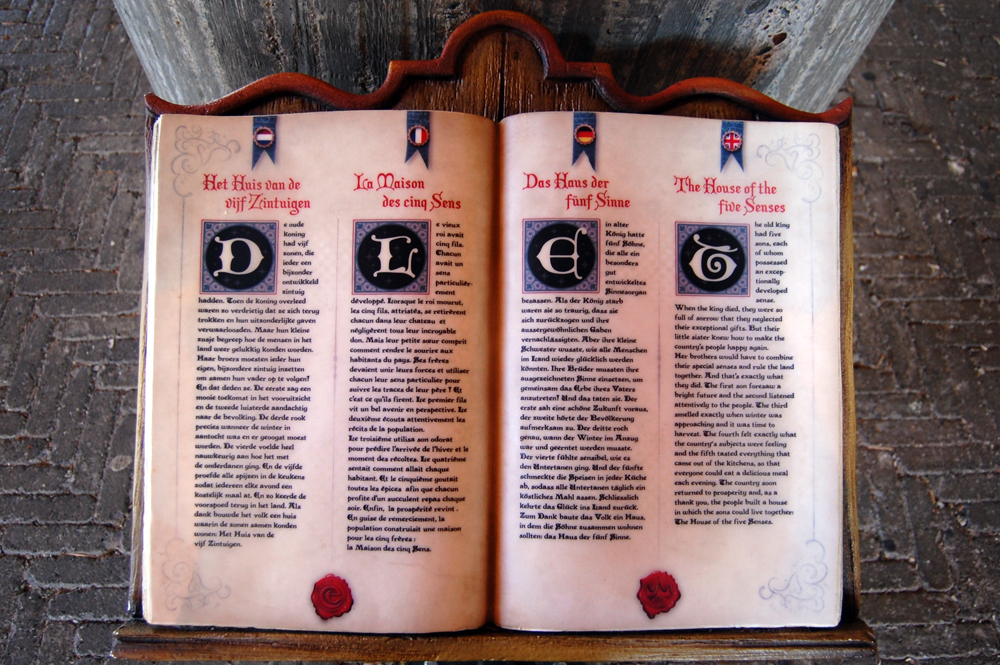 Het Huis van de
vijf Zintuigen
De oude
koning
had vijf
zonen, die
ieder een
bijzonder
ontwikkeld
zintuig
hadden. Toen de koning overleed
waren ze verdrietig dat ze zich terug
trokken en hun uitzonderlijke gaven
verwaarloosden. Maar hun kleine
zusje begreep hoe de mensen in het
land weer gelukkig konden worden.
Haar broers moesten ieder hun
eigen, bijzondere zintuig inzetten
om samen hun vader op te volgen!
En dat deden ze. De eerste zag een
mooie toekomst in het vooruitzicht
en de tweede luisterde aandachtig
naar de bevolking. De derde rook
precies wanneer de winter in
aantocht was en er geoogst moest
worden. De vierde voelde heel
nauwkeurig aan hoe het met
de onderdanen ging. En de vijfde
proefde alle spijzen in de keukens
zodat iedereen elke avond een
kostelijk maal at. En zo keerde de
voorspoed terug in het land. Als
dank bouwde het volk een huis
waarin de zonen samen konden
wonen: Het Huis van de
vijf Zintuigen.
La Maison
des cinq Sens
Le vieux
roi avait
cinq fils.
Chacun
avait un
sens
particulièr-
ement
développé. Lorsque le roi mourut,
les cinq fils, attristés, se retirèrent
chacun dans leur chateau et
négligèrent tous leur incroyable
don. Mais leur petite sœur comprit
comment rendre le sourire aux
habitants du pays. Ses frères
devaient unir leurs forces et utiliser
chacun leur sens particulier pour
suivre les traces de leur père ! Et
c'est ce qu'ils firent. Le premier fils
vit un bel avenir en perspective. Le
deuxième écouta attentivement les
récits de la population.
Le troisième utilisa son odorat
pour prédire l'arrivée de l'hiver et le
moment des récoltes. Le quatrième
sentait comment allait chaque
habitant. Et le cinquième goutait
toutes les épices afin que chacun
profite d'un succulent repas chaque
soir. Enfin, la prospérité revint.
En guise de remerciement, la
population construisit une maison
pour les cinq frères :
la Maison des cinq Sens.
Das Haus der
fünf Sinne
Ein alter
König hatte
fünf Söhne,
die alle ein
besonders
gut
entwickeltes
Sinnesorgan
besassen. Als der König starb
waren sie so traurig, dass sie
sich zurückzogen und ihre
aussergewöhnlichen Gaben
vernachlässigten. Aber ihre kleine
Schwester wusste, wie alle Menschen
im Land wieder glücklich werden
könnten. Ihre Brüder mussten ihre
ausgezeichneten Sinne einsetzen, um
gemeinsam das Erbe ihres Vaters
anzutreten! Und das taten sie. Der
erste sah eine schöne Zukunft voraus,
der zweite hörte der Bevölkerung
aufmerksam zu. Der dritte roch
genau, wann der Winter im Anzug
war und geerntet werden musste.
Der vierte fühlte sensibel, wie es
den Untertanen ging. Und der fünfte
schmeckte die Speisen in jeder Küche
ab, sodass alle Untertanen täglich ein
köstliches Mahl assen. Schliesslich
kehrte das Glück ins Land zurück.
Zum Dank baute das Volk ein Haus,
in dem die Söhne zusammen wohnen
sollten: das Haus der fünf Sinne.
The House of the
five Senses
The old king
had five
sons, each
of whom
possessed
an excep-
tionally
developed
sense.
When the king died, they were so
full of sorrow that they neglected
their exceptional gifts. But their
little sister knew how to make the
country's people happy again.
Her brothers would have to combine
their special senses and rule the land
together. And that's exactly what
they did. The first son foresaw a
bright future and the second listened
attentively to the people. The third
smelled exactly when winter was
approaching and it was time to
harvest. The fourth felt exactly what
the country's subjects were feeling
and the fifth tasted everything that
came out of the kitchens, so that
everyone could eat a delicious meal
each evening. The country soon
returned to prosperity and, as a
thank you, the people built a house
in which the sons could live together:
The House of the five Senses.